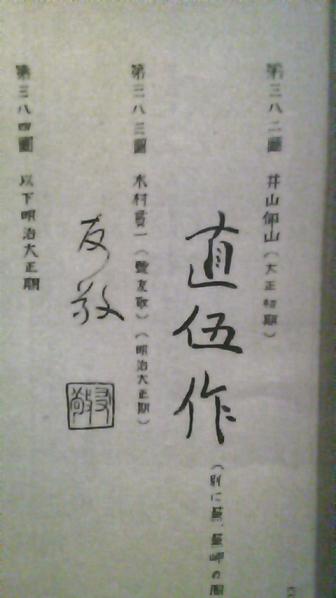 第三八二圖 井山仰山（大正初期）
直伍作
（別に
第三八三圖 木村貞一（號友敬）（明治大正期）
友敬
友敬
第三八四圖 以下明治大正期